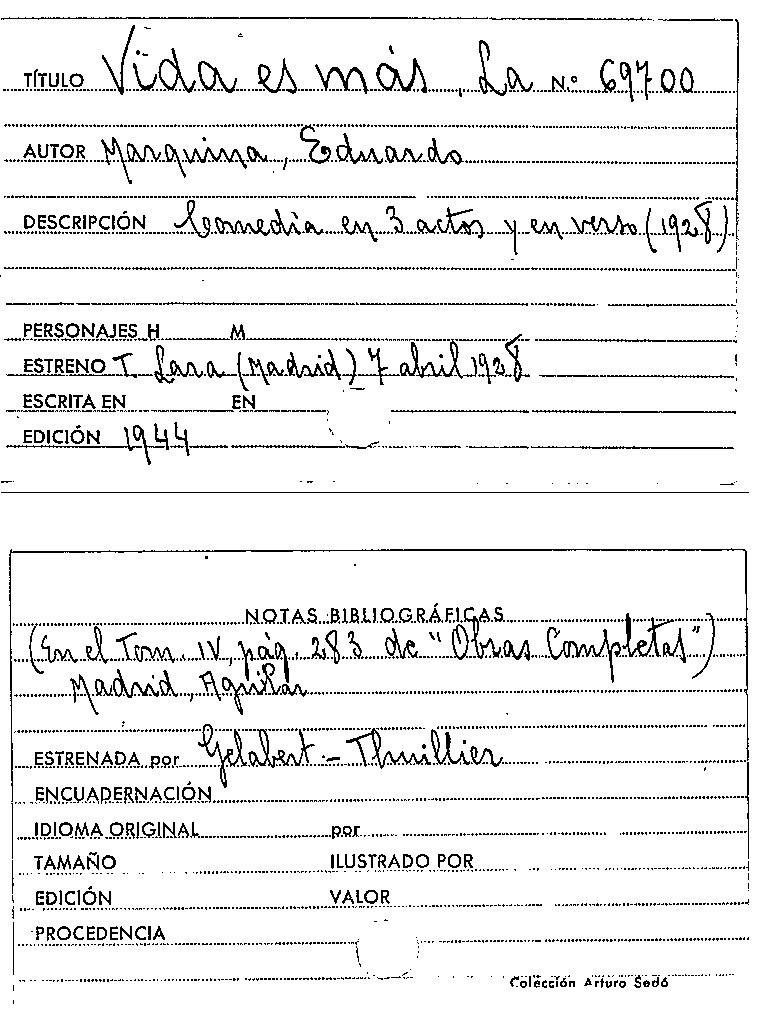 TÍTULO Vida es más, La N.º 69700
AUTOR Marquina, Eduardo
DESCRIPCIÓN Comedia en 3 actos y en verso (1928)
PERSONAJES H M
ESTRENO T. Lara (Madrid) 7 abril 1928
ESCRITA EN EN
EDICIÓN 1944
NOTAS BIBLIOGRÁFICAS
(En el Tom. IV, pág. 283 de "Obras Completas")
Madrid, Aguilar
ESTRENADA por Gelabert - Thuillier
ENCUADERNACIÓN
IDIOMA ORIGINAL por
TAMAÑO ILUSTRADO POR
EDICIÓN VALOR
PROCEDENCIA
Colección Arturo Sedó